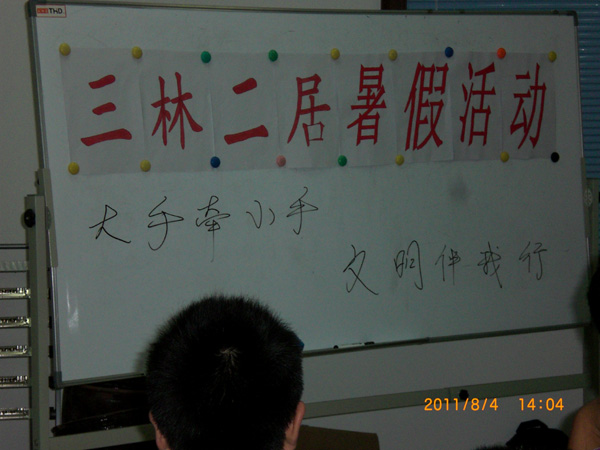 THD
三林二居暑假活动
大手牵小手
文明伴我行
2011/8/4 14:04